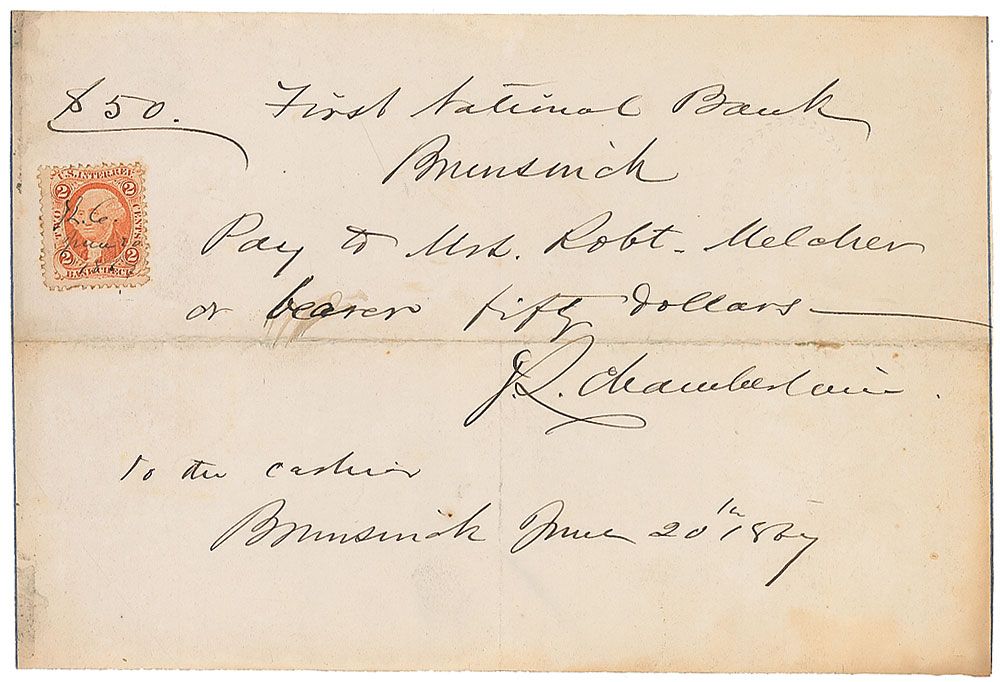 $50. First National Bank
Brunswick
U.S. INTER REV.
2 2
TWO CENTS
J.L.C.
June
2 2
BANK CHECK
Pay to Mrs. Robt. Melcher
or bearer fifty dollars
J.L. Chamberlain.
To the cashier
Brunswick June 20th 1867